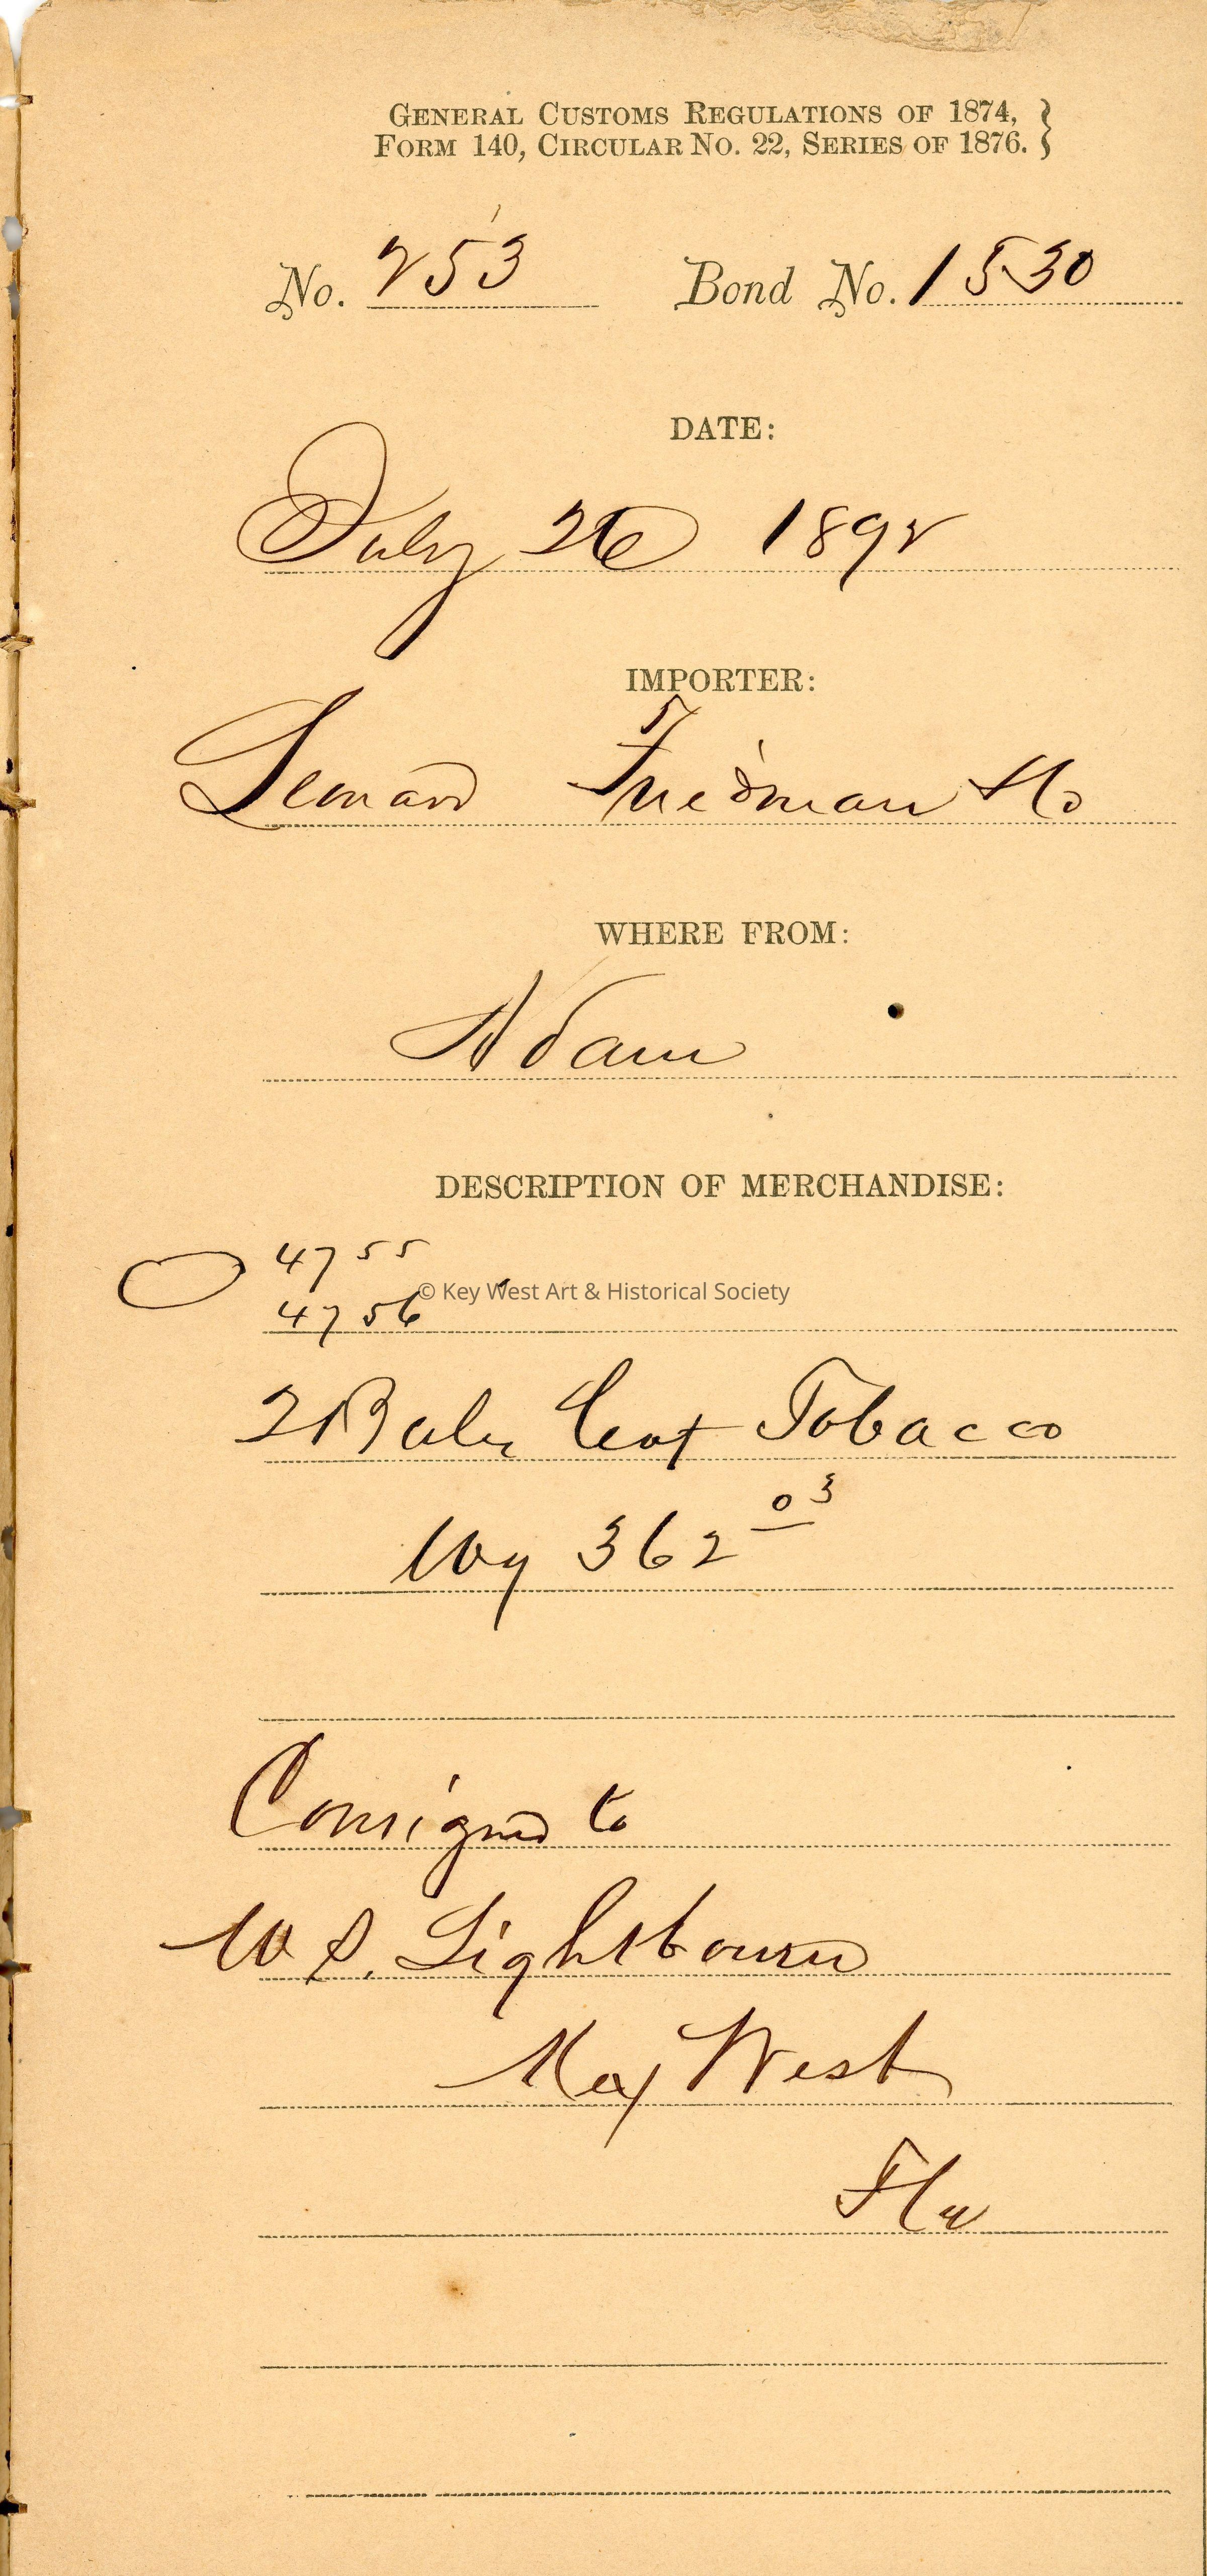 GENERAL CUSTOMS REGULATIONS OF 1874,
FORM 140, CIRCULAR NO. 22, SERIES OF 1876.
No. 253 Bond No. 1530
DATE:
July 26 1892
IMPORTER:
Leonard Friedman & Co
WHERE FROM:
Adam
DESCRIPTION OF MERCHANDISE:
4755
© Key West Art & Historical Society
4756
2 Bales Leaf Tobacco
Wg 362 03
Consigned to
W S. Lightbourn
Key West
Fla